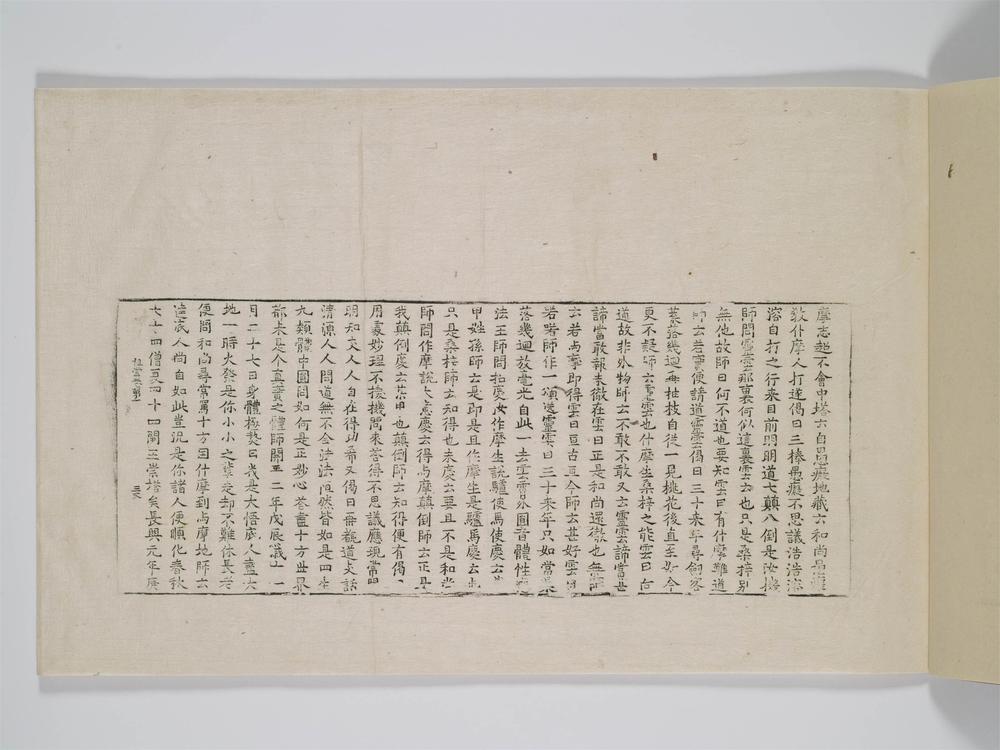 摩志超不會中塔云自是愚癡地藏云和尚
教什摩人打遂偈曰三棒愚癡不思議浩浩溶
溶自打之行來目前明明道七顛八倒是汝機
師問靈雲那裏何似這裏雲云也只是桑梓別
無他故師曰何不道也要知雲曰有什摩難道
師云若實便請道靈雲偈曰三十來年尋劍客
葉落幾迴再抽枝自從一見桃花後直至如今
更不疑師云靈雲也什摩生桑梓之能雲曰向
道故非外物師云不敢不敢又云靈雲諦當甚
諦當敢報未徹在雲曰正是和尚還徹也無師
云若与摩即得雲曰亘古亘今師云甚好雲
若喏師作一頌送靈雲曰三十來年只如常葉
落幾迴放毫光自此一去雲霄外圓音體性應
法王師問招慶汝作摩生說驢使馬使慶云某
甲姓孫師云是即是且作摩生是驢馬慶云也
只是桑梓師云知得也未慶云要且不是和尚
師問作摩說大意慶云得与摩顛倒師云正是
我顛倒慶云某甲也顛倒師云知得便有偈曰
用處妙理不換機問來答得不思議應現常明
明知人人自在得功希又偈曰無觀道話
清源人人問道無不全諸法恒然皆如是四生
九類體中圓問如何是正妙心答盡十方世界
都來是个真實之體師開平二年戊辰歲十一
月二十七日身體極熱曰我是大悟底人盡大
地一時火發是你小小之輩走却不難休長老
便問和尚尋常罵十方因什摩到与摩地師云
達底人尚自如此豈況是你諸人便順化春秋
七十四僧夏四十四閩王崇塔矣長興元年庚
祖堂卷第